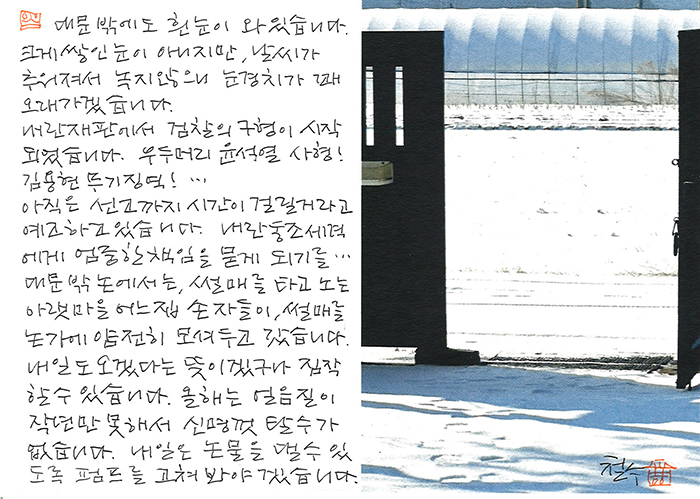 대문 밖에도 흰눈이 와 있습니다.
크게 쌓인 눈이 아니지만, 날씨가
추워져서 녹지않으니 눈경치가 꽤
오래가겠습니다.
내란재판에서 검찰의 구형이 시작
되었습니다. 우두머리 윤석열 사형!
김용현 무기징역! …
아직은 선고까지 시간이 걸릴거라고
예고하고 있습니다. 내란동조세력
에게 엄중한 책임을 묻게 되기를 …
대문 밖 논에서는, 썰매를 타고 노는
아랫마을 어느집 손자들이, 썰매를
논가에 얌전히 모셔두고 갔습니다.
내일도 오겠다는 뜻이겠구나 짐작
할 수 있습니다. 올해는 얼음질이
작년만 못해서 신명껏 탈수가
없습니다. 내일은 논물을 댈수 있
도록 펌프를 고쳐 봐야 겠습니다.
철수